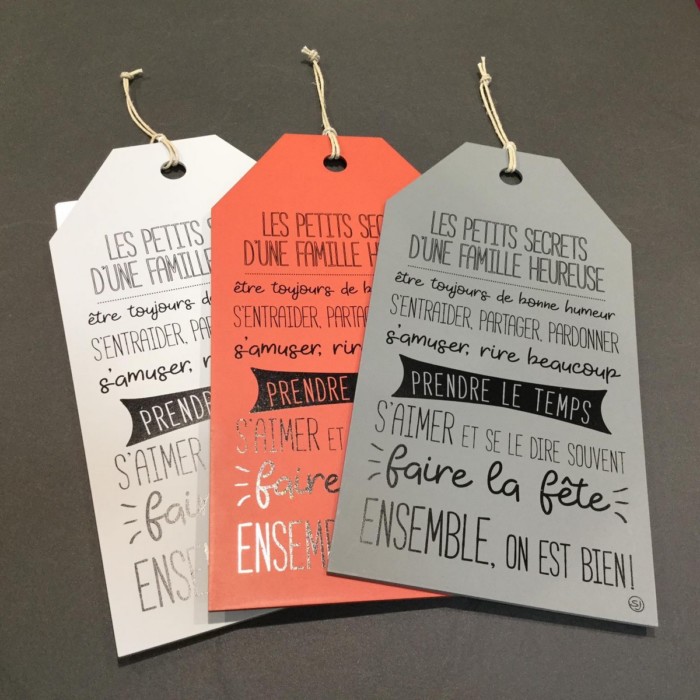 LES PETITS S
D'UNE FAMILLE
être toujours de
S'ENTRAIDER, PAR
s'amuser, r
PREND
S'AIMER
fai
ENSE
LES PETITS SEC
D'UNE FAMILLE H
être toujours de b
S'ENTRAIDER, PARTA
s'amuser, rir
PRENDRE
S'AIMER ET
faire
ENSEM
LES PETITS SECRETS
D'UNE FAMILLE HEUREUSE
être toujours de bonne humeur
S'ENTRAIDER, PARTAGER, PARDONNER
s'amuser, rire beaucoup
PRENDRE LE TEMPS
S'AIMER ET SE LE DIRE SOUVENT
faire la fête
ENSEMBLE, ON EST BIEN!